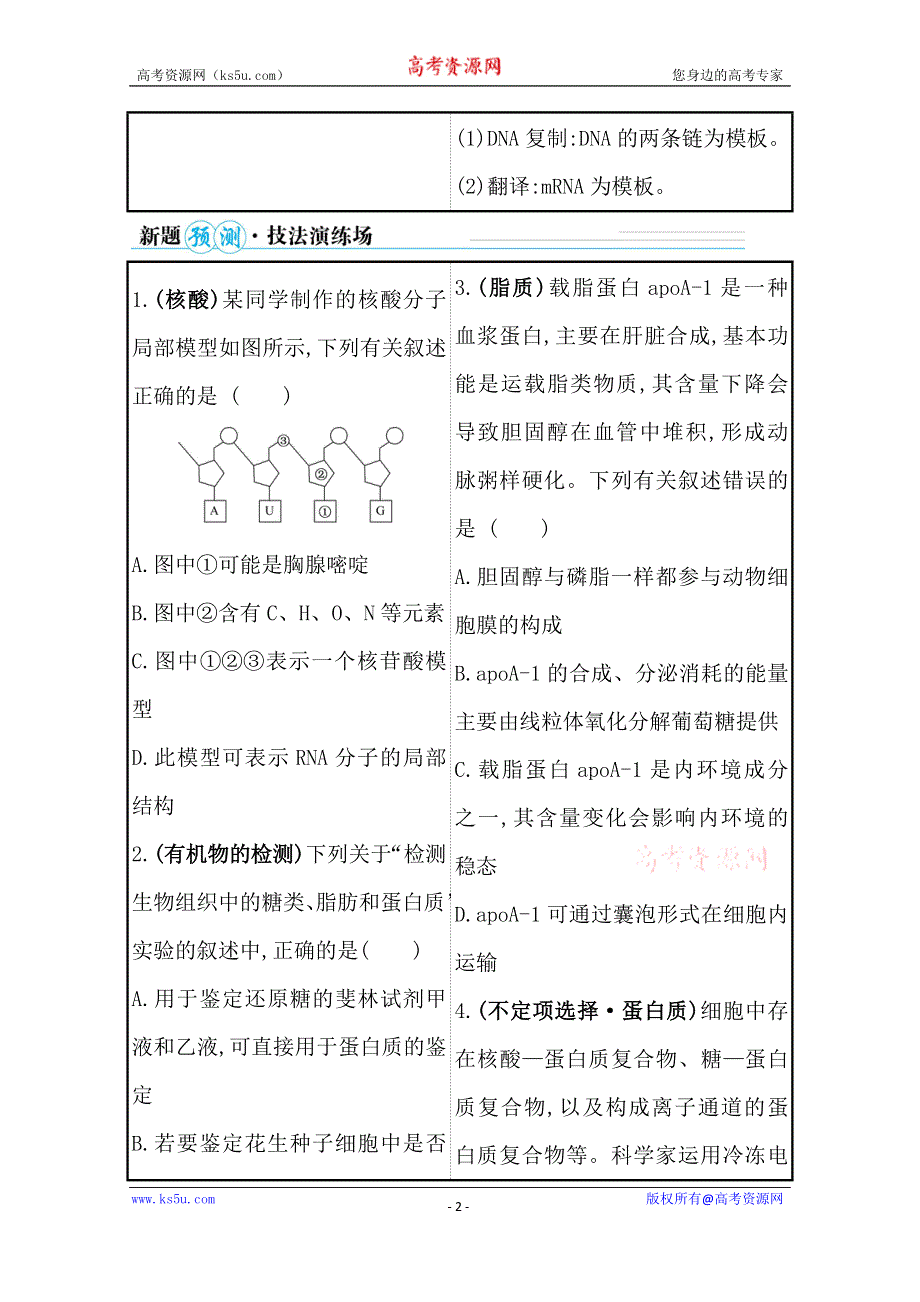 高考资源网（ks5u.com）
高考资源网
您身边的高考专家
(1)DNA 复制:DNA 的两条链为模板。
(2)翻译:mRNA 为模板。
新题预测·技法演练场
1.(核酸)某同学制作的核酸分子
局部模型如图所示,下列有关叙述
正确的是 (　　)
③
②
A U ① G
A.图中①可能是胸腺嘧啶
B.图中②含有 C、H、O、N 等元素
C.图中①②③表示一个核苷酸模
型
D.此模型可表示 RNA 分子的局部
结构
2.(有机物的检测)下列关于“检测
生物组织中的糖类、脂肪和蛋白质”
实验的叙述中,正确的是(　　)
A.用于鉴定还原糖的斐林试剂甲
液和乙液,可直接用于蛋白质的鉴
定
B.若要鉴定花生种子细胞中是否
3.(脂质)载脂蛋白 apoA-1 是一种
血浆蛋白,主要在肝脏合成,基本功
能是运载脂类物质,其含量下降会
导致胆固醇在血管中堆积,形成动
脉粥样硬化。下列有关叙述错误的
是 (　　)
A.胆固醇与磷脂一样都参与动物细
胞膜的构成
B.apoA-1 的合成、分泌消耗的能量
主要由线粒体氧化分解葡萄糖提供
C.载脂蛋白 apoA-1 是内环境成分
之一,其含量变化会影响内环境的
稳态
高考资源网
D.apoA-1 可通过囊泡形式在细胞内
运输
4.(不定项选择·蛋白质)细胞中存
在核酸—蛋白质复合物、糖—蛋白
质复合物,以及构成离子通道的蛋
白质复合物等。科学家运用冷冻电
www.ks5u.com
- 2 -
版权所有@高考资源网